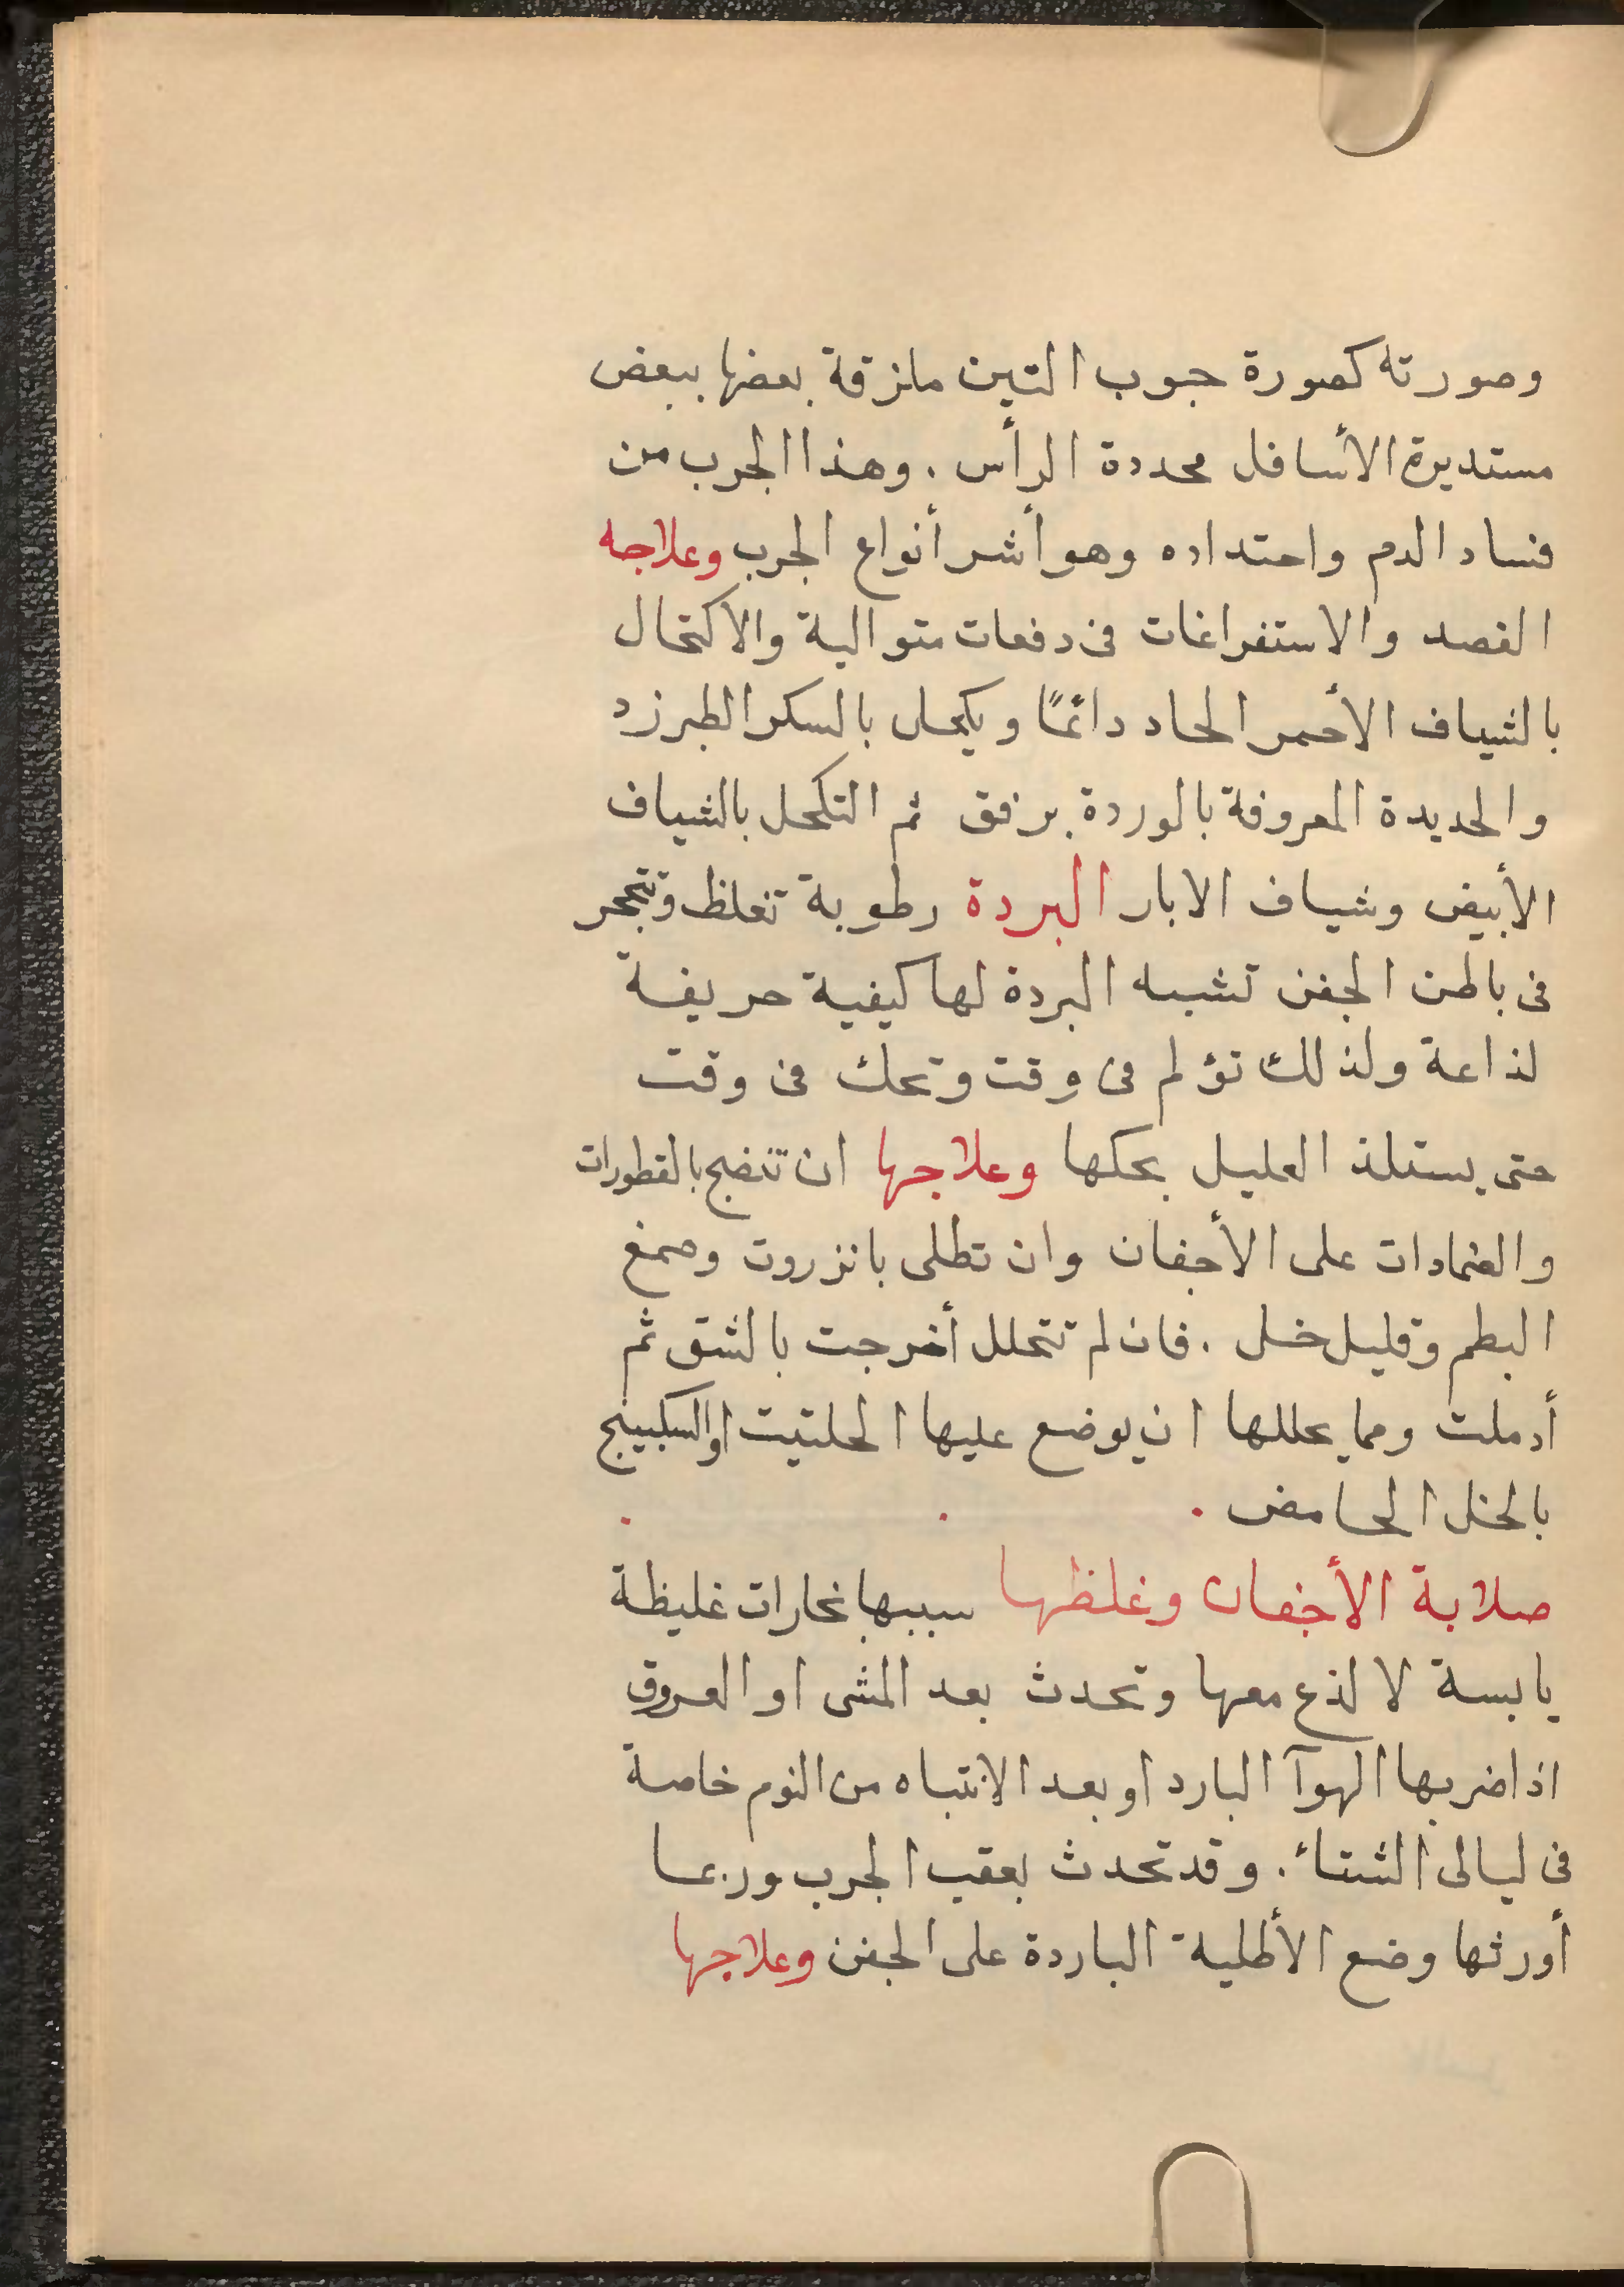 وصورته كصورة حبوب التين ملزقة بعضها ببعض
مستديرة الأسافل محددة الرأس . وهذا الجرب من
فساد الدم واحتداده وهو أشر أنواع الجرب وعلاجه
الفصد والاستفراغات فى دفعات متوالية والاكتحال
بالشياف الأحمر الحاد دائمًا ويكحل بالسكر الطبرزد
والحديدة المعروفة بالوردة برفق ثم التكحل بالشياف
الأبيض وشياف الابار البردة رطوبة تغلظ وتتحجر
فى باطن الجفن تشبه البردة لها كيفية حريفة
لذاعة ولذلك تؤلم فى وقت وتحك فى وقت
حتى يستلذ العليل بحكها وعلاجها ان تنضج بالقطورات
والضمادات على الأجفان وان تطلى بانزروت وصمغ
البطم وقليل خل . فان لم تتحلل أخرجت بالشق ثم
أدملت ومما يحللها ان يوضع عليها الحلتيت او السكبينج
بالخل الحامض . . .
صلابة الأجفان وغلظها سببها بخارات غليظة
يابسة لا لذع معها وتحدث بعد المشى او العروق
اذا ضربها الهوآ البارد او بعد الانتباه من النوم خاصة
فى ليالى الشتاء . وقد تحدث بعقب الجرب وربما
أورثها وضع الأطلية الباردة على الجفن وعلاجها